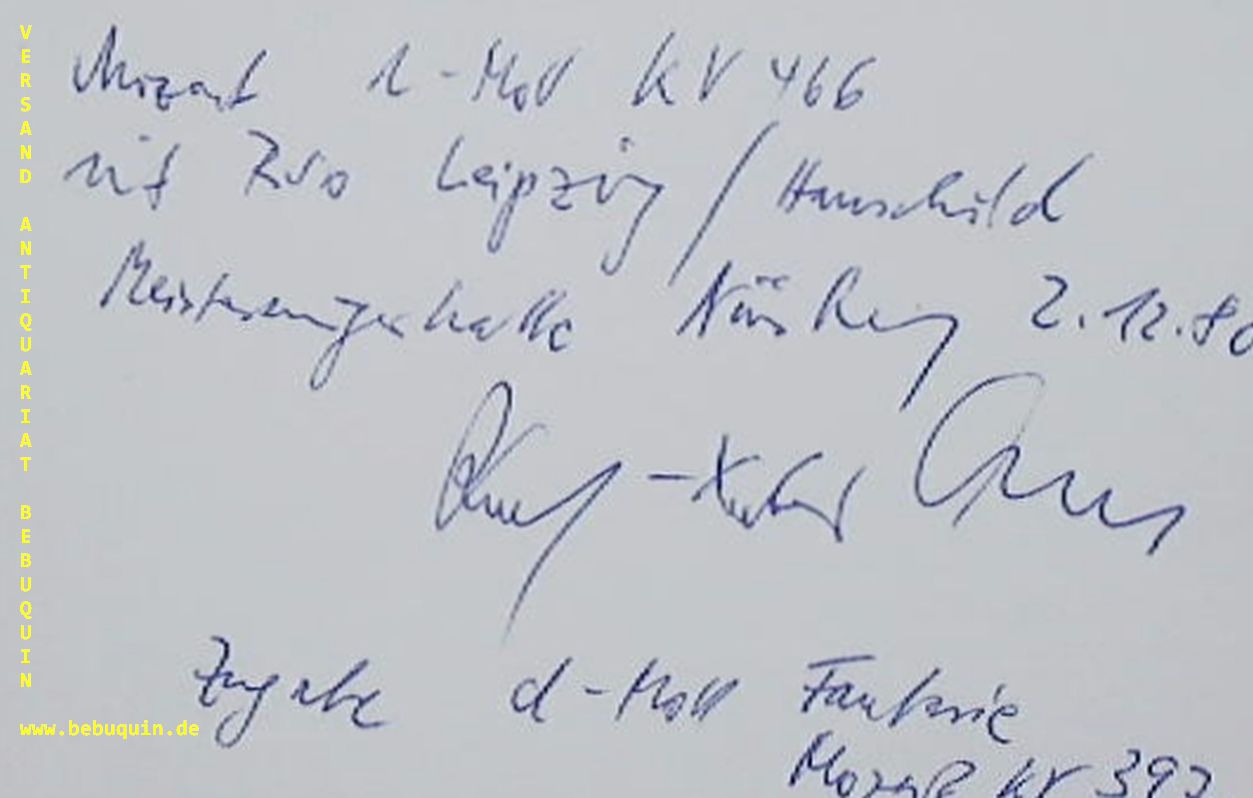 VERSAND ANTIQUARIAT BEBUQUIN
www.bebuquin.de
Mozart d-Moll KV 466
mit RSO Leipzig / Hauschild
Meistersingerhalle Nürnberg 2.12.80
Zugabe d-Moll Fantasie
Mozart KV 397